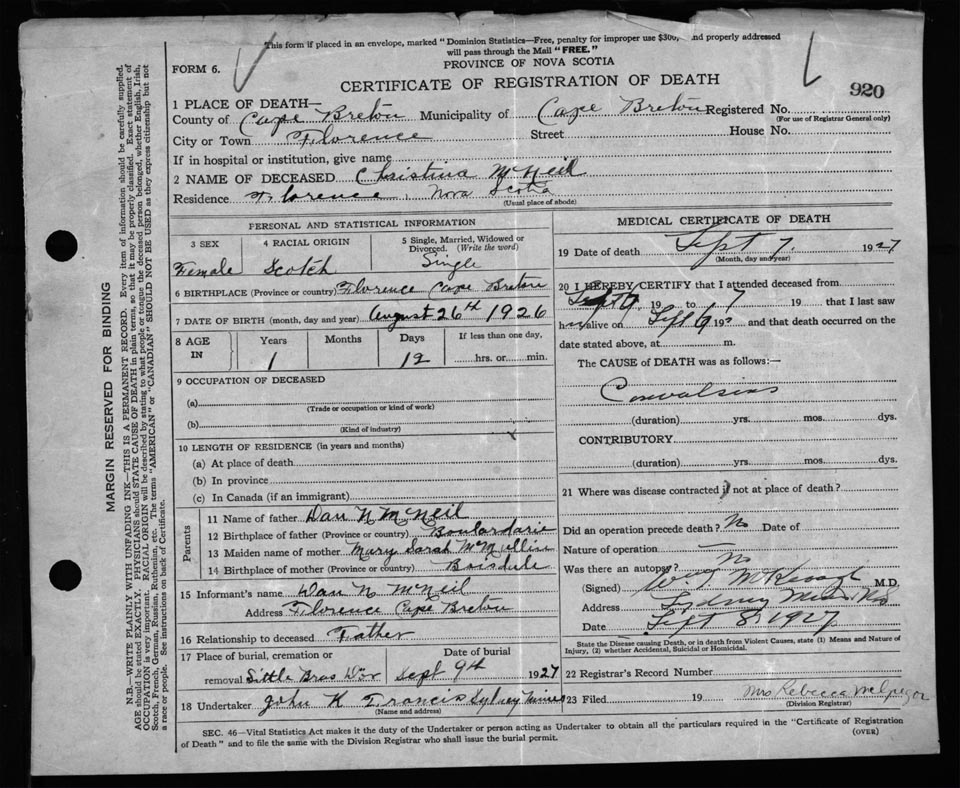 This form if placed in an envelope, marked "Dominion Statistics—Free, penalty for improper use $300, and properly addressed
will pass through the Mail "FREE."
PROVINCE OF NOVA SCOTIA
FORM 6.
CERTIFICATE OF REGISTRATION OF DEATH
920
1 PLACE OF DEATH—
County of Cape Breton Municipality of Cape Breton Registered No.
(For use of Registrar General only)
City or Town Florence Street House No.
If in hospital or institution, give name
2 NAME OF DECEASED Christina McNeil
Residence Florence, Nova Scotia
(Usual place of abode)
PERSONAL AND STATISTICAL INFORMATION
3 SEX 4 RACIAL ORIGIN 5 Single, Married, Widowed or Divorced. (Write the word)
Female Scotch Single
6 BIRTHPLACE (Province or country) Florence Cape Breton
7 DATE OF BIRTH (month, day and year) August 26th 1926
8 AGE IN Years Months Days If less than one day,
1 12 hrs. or min.
9 OCCUPATION OF DECEASED
(a)
(Trade or occupation or kind of work)
(b)
(Kind of industry)
10 LENGTH OF RESIDENCE (in years and months)
(a) At place of death
(b) In province
(c) In Canada (if an immigrant)
Parents
11 Name of father Dan N McNeil
12 Birthplace of father (Province or country) Boulardarie
13 Maiden name of mother Mary Sarah McMullin
14 Birthplace of mother (Province or country) Boisdale
15 Informant's name Dan N. McNeil
Address Florence Cape Breton
16 Relationship to deceased Father
17 Place of burial, cremation or removal Little Bras D'or Date of burial Sept 9th 1927
18 Undertaker John K Francis Sydney Mines
(Name and address)
MEDICAL CERTIFICATE OF DEATH
19 Date of death Sept 7 1927
(Month, day and year)
20 I HEREBY CERTIFY that I attended deceased from
Sept 19 to 7 19 that I last saw
h alive on Sept 6 19 and that death occurred on the
date stated above, at m.
The CAUSE of DEATH was as follows:—
Convulsions
(duration) yrs. mos. dys.
CONTRIBUTORY
(duration) yrs. mos. dys.
21 Where was disease contracted if not at place of death?
Did an operation precede death? No Date of
Nature of operation
Was there an autopsy? No
(Signed) M.D.
Address Sydney Mines NS
Date Sept 8 1927
State the Disease causing Death, or in death from Violent Causes, state (1) Means and Nature of
Injury, (2) whether Accidental, Suicidal or Homicidal.
22 Registrar's Record Number
23 Filed 19 Mrs Rebecca McGregor
(Division Registrar)
SEC. 46—Vital Statistics Act makes it the duty of the Undertaker or person acting as Undertaker to obtain all the particulars required in the "Certificate of Registration
of Death" and to file the same with the Division Registrar who shall issue the burial permit.
(OVER)
MARGIN RESERVED FOR BINDING
N.B.—WRITE PLAINLY WITH UNFADING INK—THIS IS A PERMANENT RECORD. Every item of information should be carefully supplied.
AGE should be stated EXACTLY. PHYSICIANS should STATE CAUSE OF DEATH in plain terms, so that it may be properly classified. Exact statement of
OCCUPATION is very important. RACIAL ORIGIN will be described by stating to what people or tongue the deceased person belonged, whether English, Irish,
Scotch, French, German, Russian, Ruthenian, etc. The terms "AMERICAN" or "CANADIAN" SHOULD NOT BE USED as they express citizenship but not
a race or people. See instructions on back of Certificate.